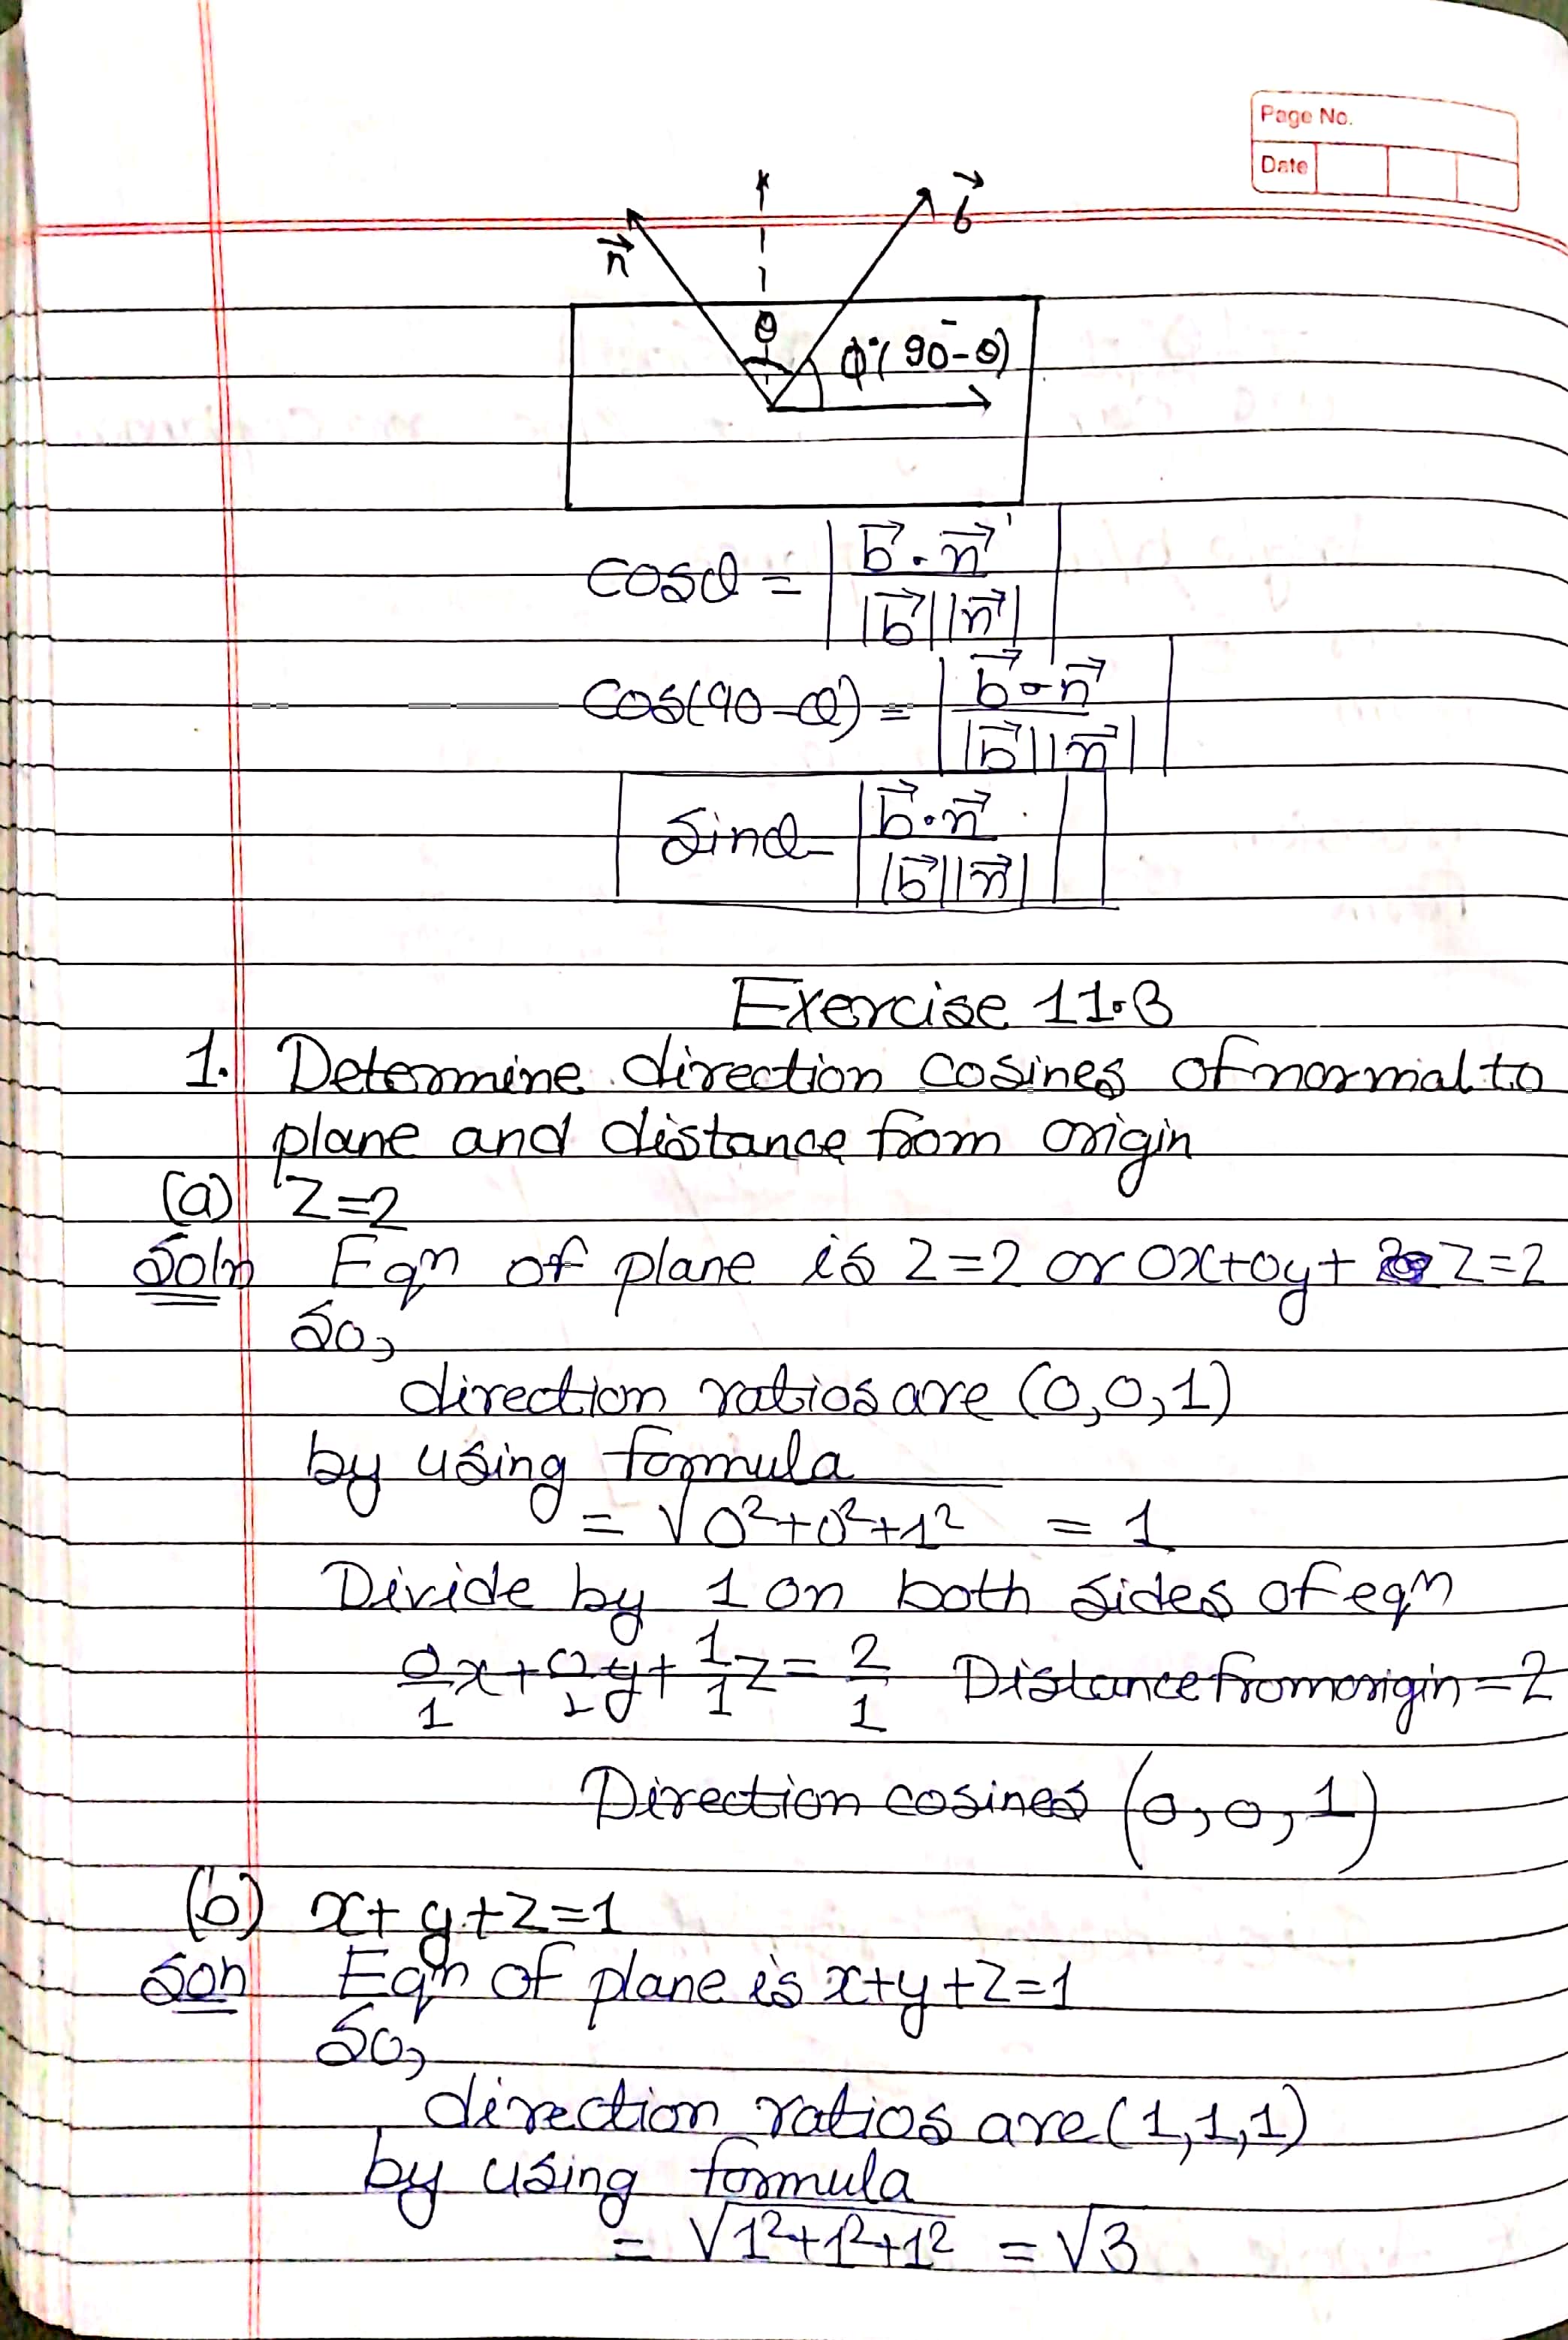 Page No.
Date
n⃗ b⃗
θ φ(90-θ)
cosθ = |b⃗.n⃗ / |b⃗||n⃗||
cos(90-θ) = |b⃗.n⃗ / |b⃗||n⃗||
Sinθ = |b⃗.n⃗ / |b⃗||n⃗||
Exercise 11.3
1. Determine direction cosines of normal to
plane and distance from origin
(a) Z=2
Soln Eqn of plane is Z=2 or 0x+0y+ Z=2
So,
direction ratios are (0,0,1)
by using formula
= √0²+0²+1² = 1
Divide by 1 on both sides of eqn
0/1 x + 0/1 y + 1/1 z = 2/1 Distance from origin = 2
Direction cosines (0,0,1)
(b) x+y+z=1
Son Eqn of plane is x+y+z=1
So,
direction ratios are (1,1,1)
by using formula
= √1²+1²+1² = √3